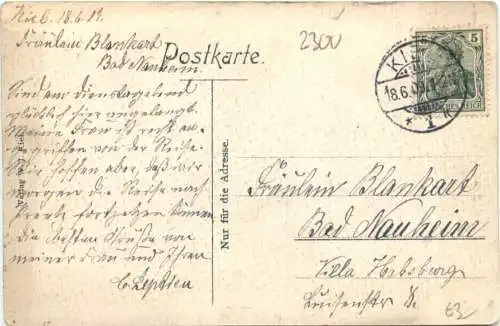 Kiel. 18.6.09.
Fräulein Blankart
Bad Nauheim.
Sind am Dienstagabend
glücklich hier angelangt.
Meine Frau ist recht an-
gegriffen von der Reise.
Wir hoffen aber, daß wir
morgen die Reise nach
fortsetzen können
die besten Grüße von
meiner Frau und Ihrem
C. Leptien
Postkarte.
2300
5
KIEL
18.6.09
DEUTSCHES REICH
* 1
Nur für die Adresse.
Verlag
Fräulein Blankart
Bad Nauheim
Villa Habsburg
Luisenstr 8.